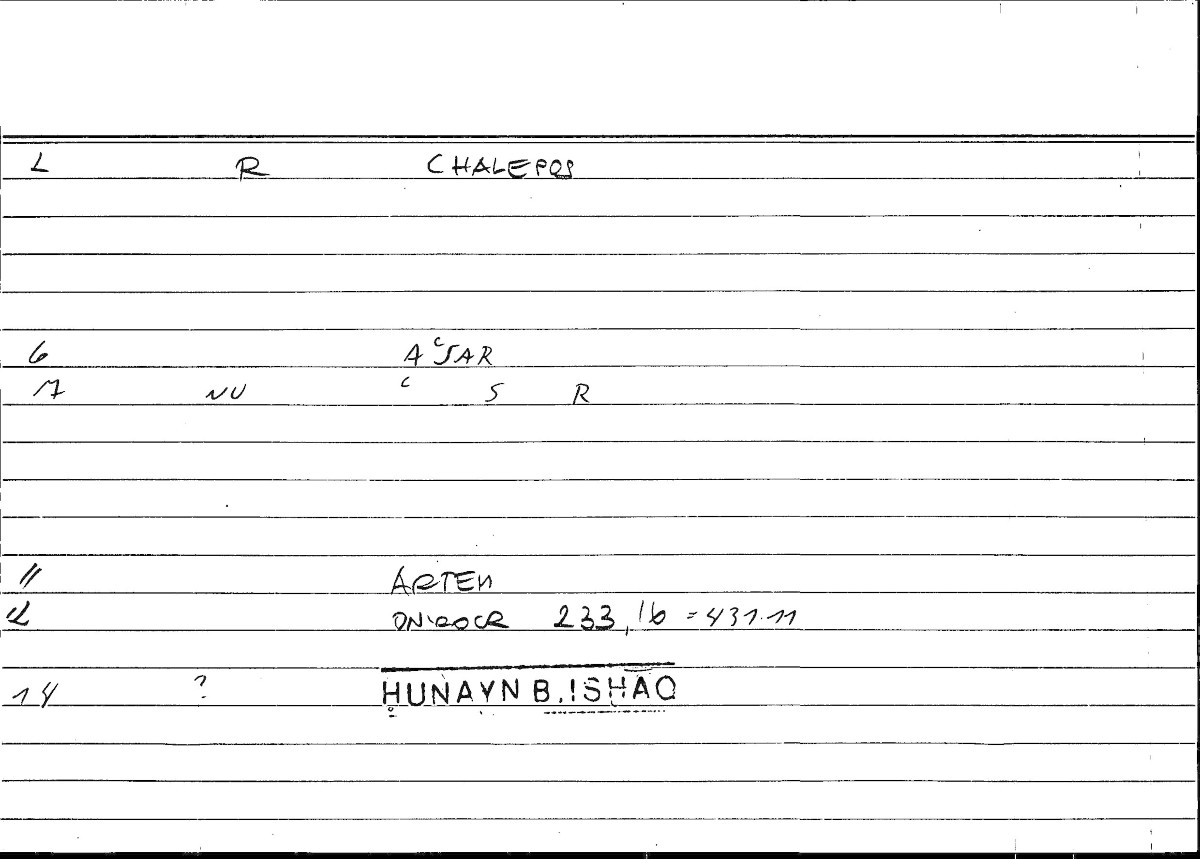 L R CHALEPOS
6 AʿSAR
17 NU ʿ S R
11 ARTEM
12 ONIROCR 233,16 = 431.11
14 ? ḤUNAYN B. ISḤĀQ